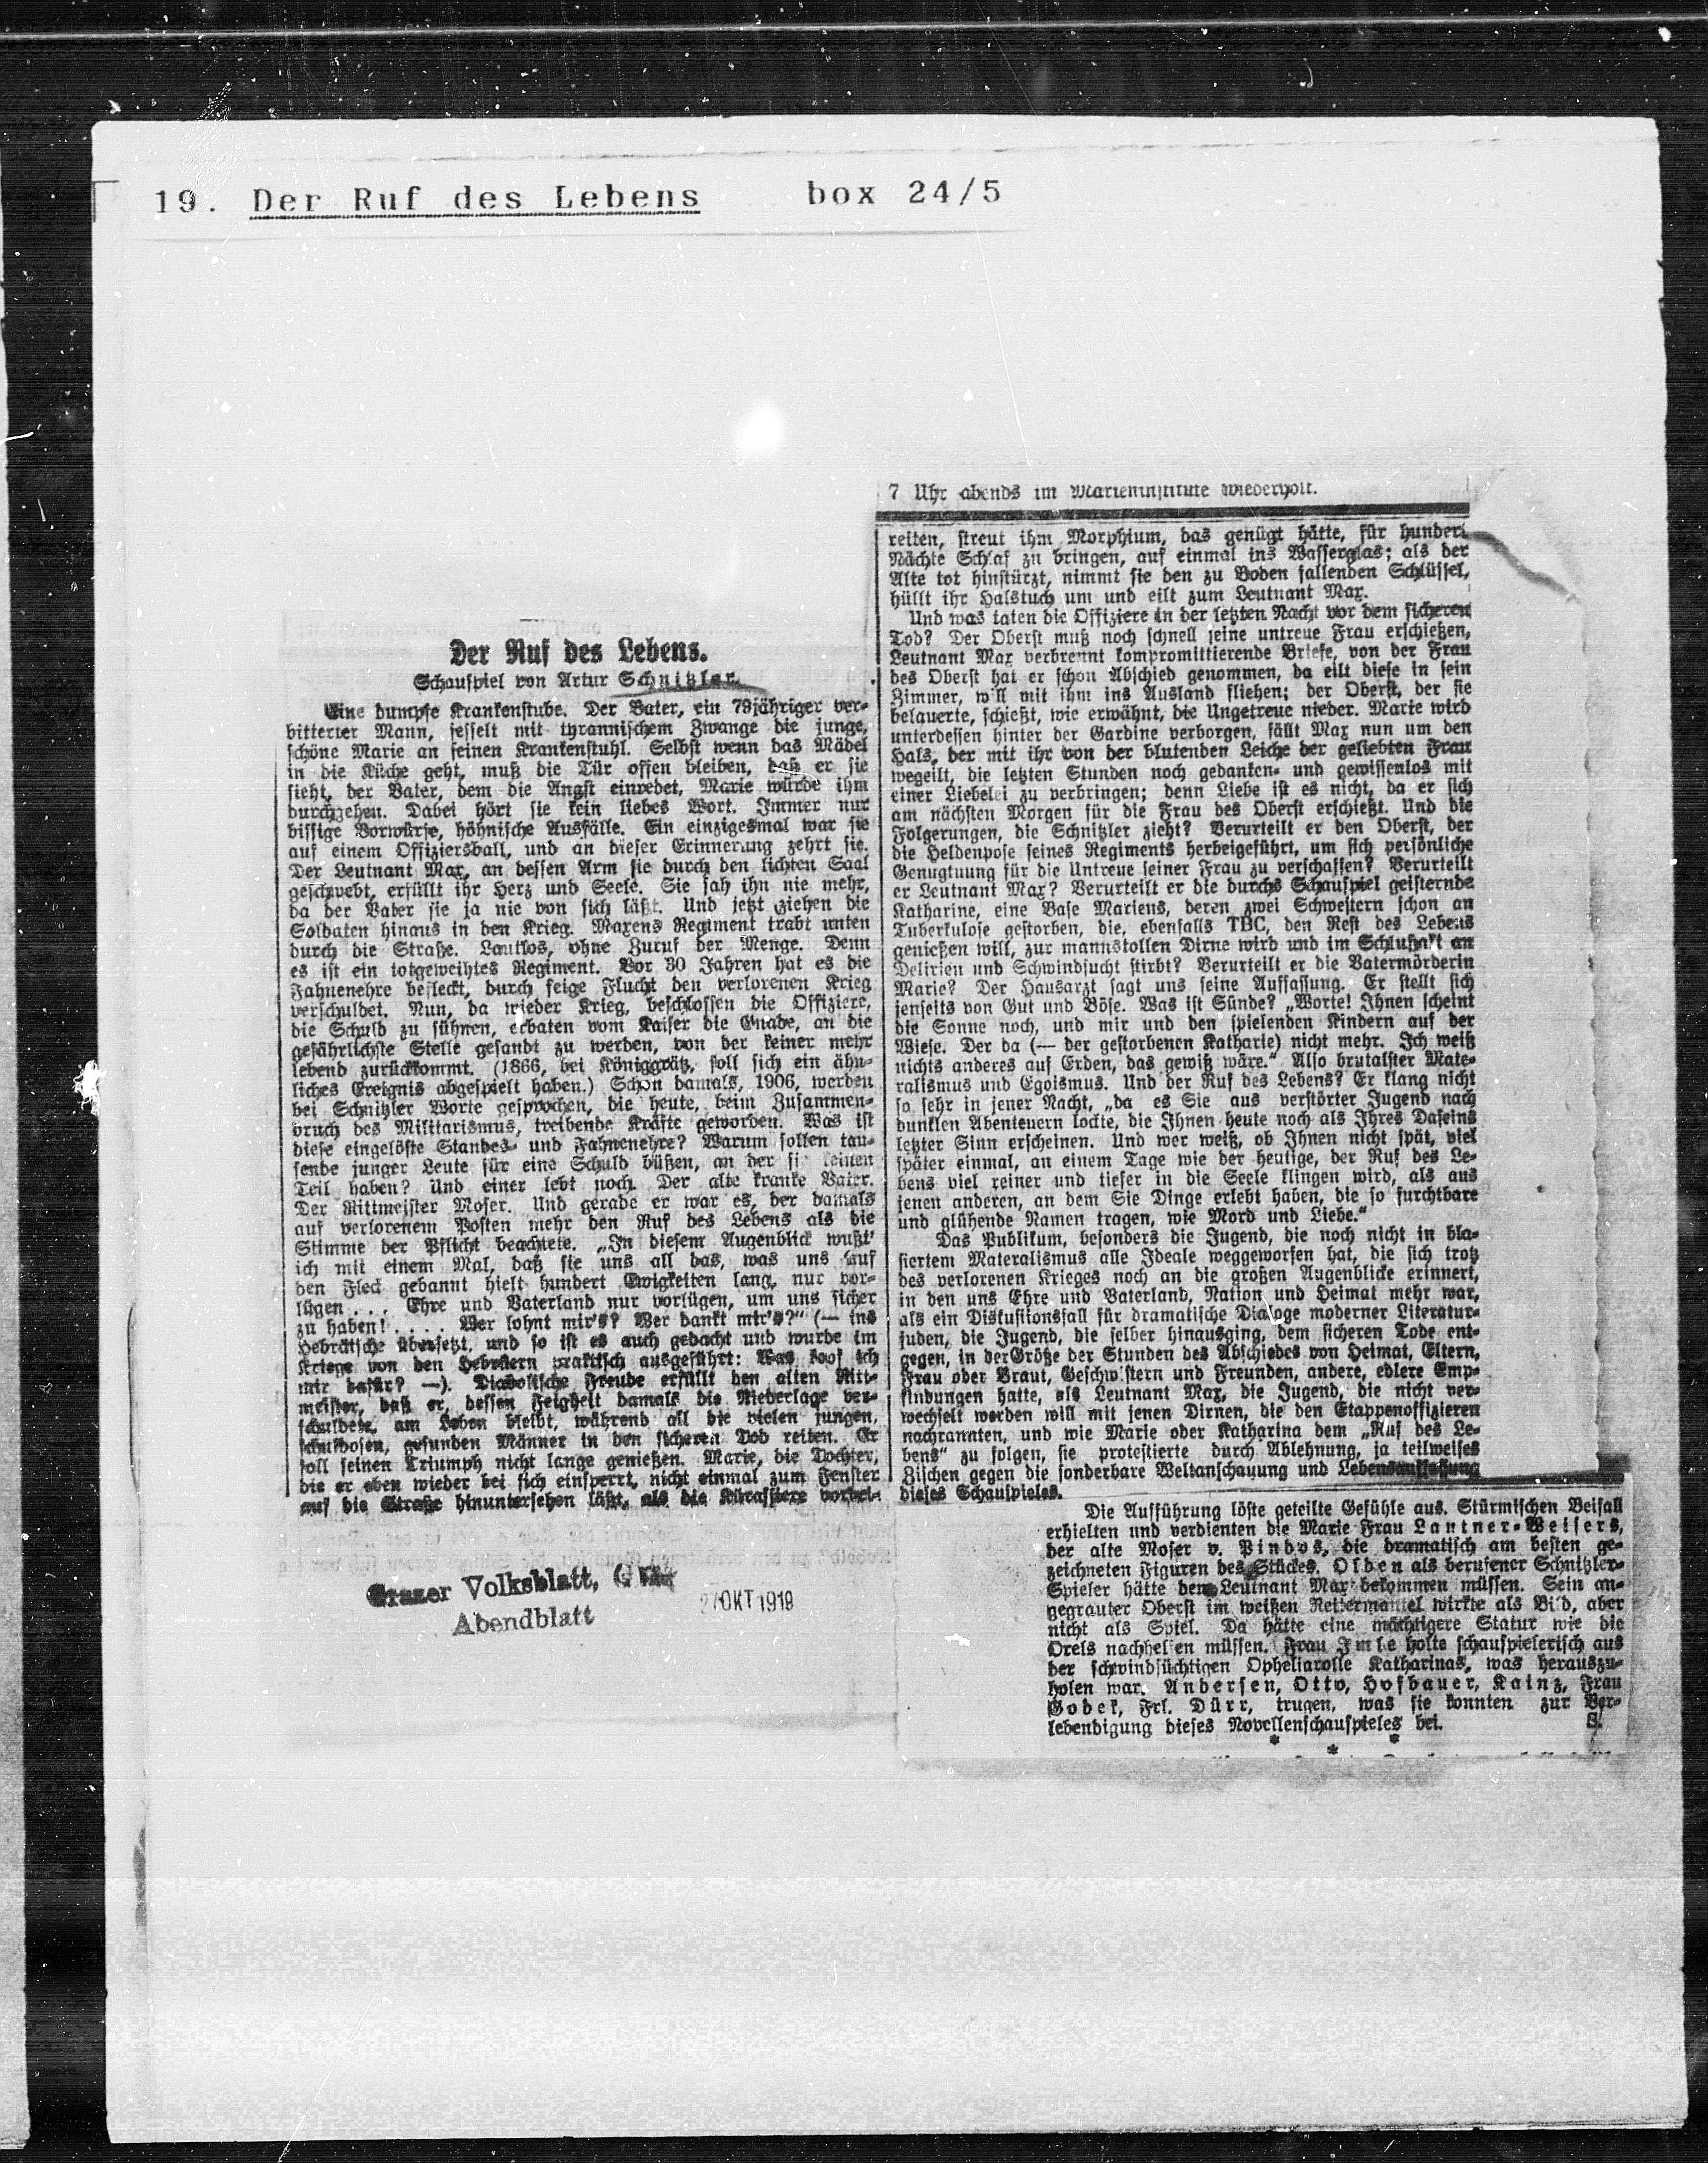 19. Der Ruf des Lebens box 24/5
Der Ruf des Lebens.
Schauspiel von Artur Schnitzler.
Eine dumpfe Krankenstube. Der Vater, ein 79jähriger ver-
bitterter Mann, fesselt mit tyrannischem Zwange die junge,
schöne Marie an seinen Krankenstuhl. Selbst wenn das Mädel
in die Küche geht, muß die Tür offen bleiben, daß er sie
sieht, der Vater, dem die Angst einredet, Marie würde ihm
durchgehen. Dabei hört sie kein liebes Wort. Immer nur
bissige Vorwürfe, höhnische Ausfälle. Ein einzigesmal war sie
auf einem Offiziersball, und an dieser Erinnerung zehrt sie.
Der Leutnant Max, an dessen Arm sie durch den lichten Saal
geschwebt, erfüllt ihr Herz und Seele. Sie sah ihn nie mehr,
da der Vater sie ja nie von sich läßt. Und jetzt ziehen die
Soldaten hinaus in den Krieg. Maxens Regiment trabt unten
durch die Straße. Lautlos, ohne Zuruf der Menge. Denn
es ist ein totgeweihtes Regiment. Vor 30 Jahren hat es die
Fahnenehre befleckt, durch feige Flucht den verlorenen Krieg
verschuldet. Nun, da wieder Krieg, beschlossen die Offiziere,
die Schuld zu sühnen, erbaten vom Kaiser die Gnade, an die
gefährlichste Stelle gesandt zu werden, von der keiner mehr
lebend zurückkommt. (1866, bei Königgrätz, soll sich ein ähn-
liches Ereignis abgespielt haben.) Schon damals, 1906, werden
bei Schnitzler Worte gesprochen, die heute, beim Zusammen-
bruch des Militarismus, treibende Kräfte geworden. Was ist
diese eingelöste Standes- und Fahnenehre? Warum sollen tau-
sende junger Leute für eine Schuld büßen, an der sie keinen
Teil haben? Und einer lebt noch. Der alte kranke Vater.
Der Rittmeister Moser. Und gerade er war es, der damals
auf verlorenem Posten mehr den Ruf des Lebens als die
Stimme der Pflicht beachtete. „In diesem Augenblick wußt'
ich mit einem Mal, daß sie uns all das, was uns auf
den Fleck gebannt hielt hundert Ewigkeiten lang, nur vor-
lügen . . . Ehre und Vaterland nur vorlügen, um uns sicher
zu haben! . . . . Wer lohnt mir's? Wer dankt mir's?“ (— ins
Hebräische übersetzt, und so ist es auch gedacht und wurde im
Kriege von den Hebräern praktisch ausgeführt: Was koof ich
mir dafür? —). Diabolische Freude erfüllt den alten Ritt-
meister, daß er, dessen Feigheit damals die Niederlage ver-
schuldete, am Leben bleibt, während all die vielen jungen,
schuldlosen, gesunden Männer in den sicheren Tod reiten. Er
soll seinen Triumph nicht lange genießen. Marie, die Tochter,
die er eben wieder bei sich einsperrt, nicht einmal zum Fenster
auf die Straße hinuntersehen läßt, als die Kürassiere vorbei-
Grazer Volksblatt,
Abendblatt
OKT 1919
7 Uhr abends im Marieninstitute wiederholt.
reiten, streut ihm Morphium, das genügt hätte, für hundert
Nächte Schlaf zu bringen, auf einmal ins Wasserglas; als der
Alte tot hinstürzt, nimmt sie den zu Boden fallenden Schlüssel,
hüllt ihr Halstuch um und eilt zum Leutnant Max.
Und was taten die Offiziere in der letzten Nacht vor dem sicheren
Tod? Der Oberst muß noch schnell seine untreue Frau erschießen,
Leutnant Max verbrennt kompromittierende Briefe, von der Frau
des Oberst hat er schon Abschied genommen, da eilt diese in sein
Zimmer, will mit ihm ins Ausland fliehen; der Oberst, der sie
belauerte, schießt, wie erwähnt, die Ungetreue nieder. Marie wird
unterdessen hinter der Gardine verborgen, fällt Max nun um den
Hals, der mit ihr von der blutenden Leiche der geliebten Frau
wegeilt, die letzten Stunden noch gedanken- und gewissenlos mit
einer Liebelei zu verbringen; denn Liebe ist es nicht, da er sich
am nächsten Morgen für die Frau des Oberst erschießt. Und die
Folgerungen, die Schnitzler zieht? Verurteilt er den Oberst, der
die Heldenpose seines Regiments herbeigeführt, um sich persönliche
Genugtuung für die Untreue seiner Frau zu verschaffen? Verurteilt
er Leutnant Max? Verurteilt er die durchs Schauspiel geisternde
Katharine, eine Base Mariens, deren zwei Schwestern schon an
Tuberkulose gestorben, die, ebenfalls TBC, den Rest des Lebens
genießen will, zur mannstollen Dirne wird und im Schlußakt an
Delirien und Schwindsucht stirbt? Verurteilt er die Vatermörderin
Marie? Der Hausarzt sagt uns seine Auffassung. Er stellt sich
jenseits von Gut und Böse. Was ist Sünde? „Worte! Ihnen scheint
die Sonne noch, und mir und den spielenden Kindern auf der
Wiese. Der da (— der gestorbenen Katharie) nicht mehr. Ich weiß
nichts anderes auf Erden, das gewiß wäre.“ Also brutalster Mate-
ralismus und Egoismus. Und der Ruf des Lebens? Er klang nicht
so sehr in jener Nacht, „da es Sie aus verstörter Jugend nach
dunklen Abenteuern lockte, die Ihnen heute noch als Ihres Daseins
letzter Sinn erscheinen. Und wer weiß, ob Ihnen nicht spät, viel
später einmal, an einem Tage wie der heutige, der Ruf des Le-
bens viel reiner und tiefer in die Seele klingen wird, als aus
jenen anderen, an dem Sie Dinge erlebt haben, die so furchtbare
und glühende Namen tragen, wie Mord und Liebe.“
Das Publikum, besonders die Jugend, die noch nicht in bla-
siertem Materalismus alle Ideale weggeworfen hat, die sich trotz
des verlorenen Krieges noch an die großen Augenblicke erinnert,
in den uns Ehre und Vaterland, Nation und Heimat mehr war,
als ein Diskutionsfall für dramatische Dialoge moderner Literatur-
juden, die Jugend, die selber hinausging, dem sicheren Tode ent-
gegen, in derGröße der Stunden des Abschiedes von Heimat, Eltern,
Frau oder Braut, Geschwistern und Freunden, andere, edlere Emp-
findungen hatte, als Leutnant Max, die Jugend, die nicht ver-
wechselt werden will mit jenen Dirnen, die den Etappenoffizieren
nachrannten, und wie Marie oder Katharina dem „Ruf des Le-
bens“ zu folgen, sie protestierte durch Ablehnung, ja teilweises
Zischen gegen die sonderbare Weltanschauung und Lebensauffassung
dieses Schauspieles.
Die Aufführung löste geteilte Gefühle aus. Stürmischen Beifall
erhielten und verdienten die Marie Frau Lautner-Weisers,
der alte Moser v. Pindos, die dramatisch am besten ge-
zeichneten Figuren des Stückes. Olden als berufener Schnitzler-
Spieler hätte den Leutnant Max bekommen müssen. Sein an-
gegrauter Oberst im weißen Reitermantel wirkte als Bild, aber
nicht als Spiel. Da hätte eine mächtigere Statur wie die
Orels nachhelfen müssen. Frau Imle holte schauspielerisch aus
der schwindsüchtigen Opheliarolle Katharinas, was herauszu-
holen war. Andersen, Otto, Hofbauer, Kainz, Frau
Godek, Frl. Dürr, trugen, was sie konnten zur Ver-
lebendigung dieses Novellenschauspieles bei. S.
* * *